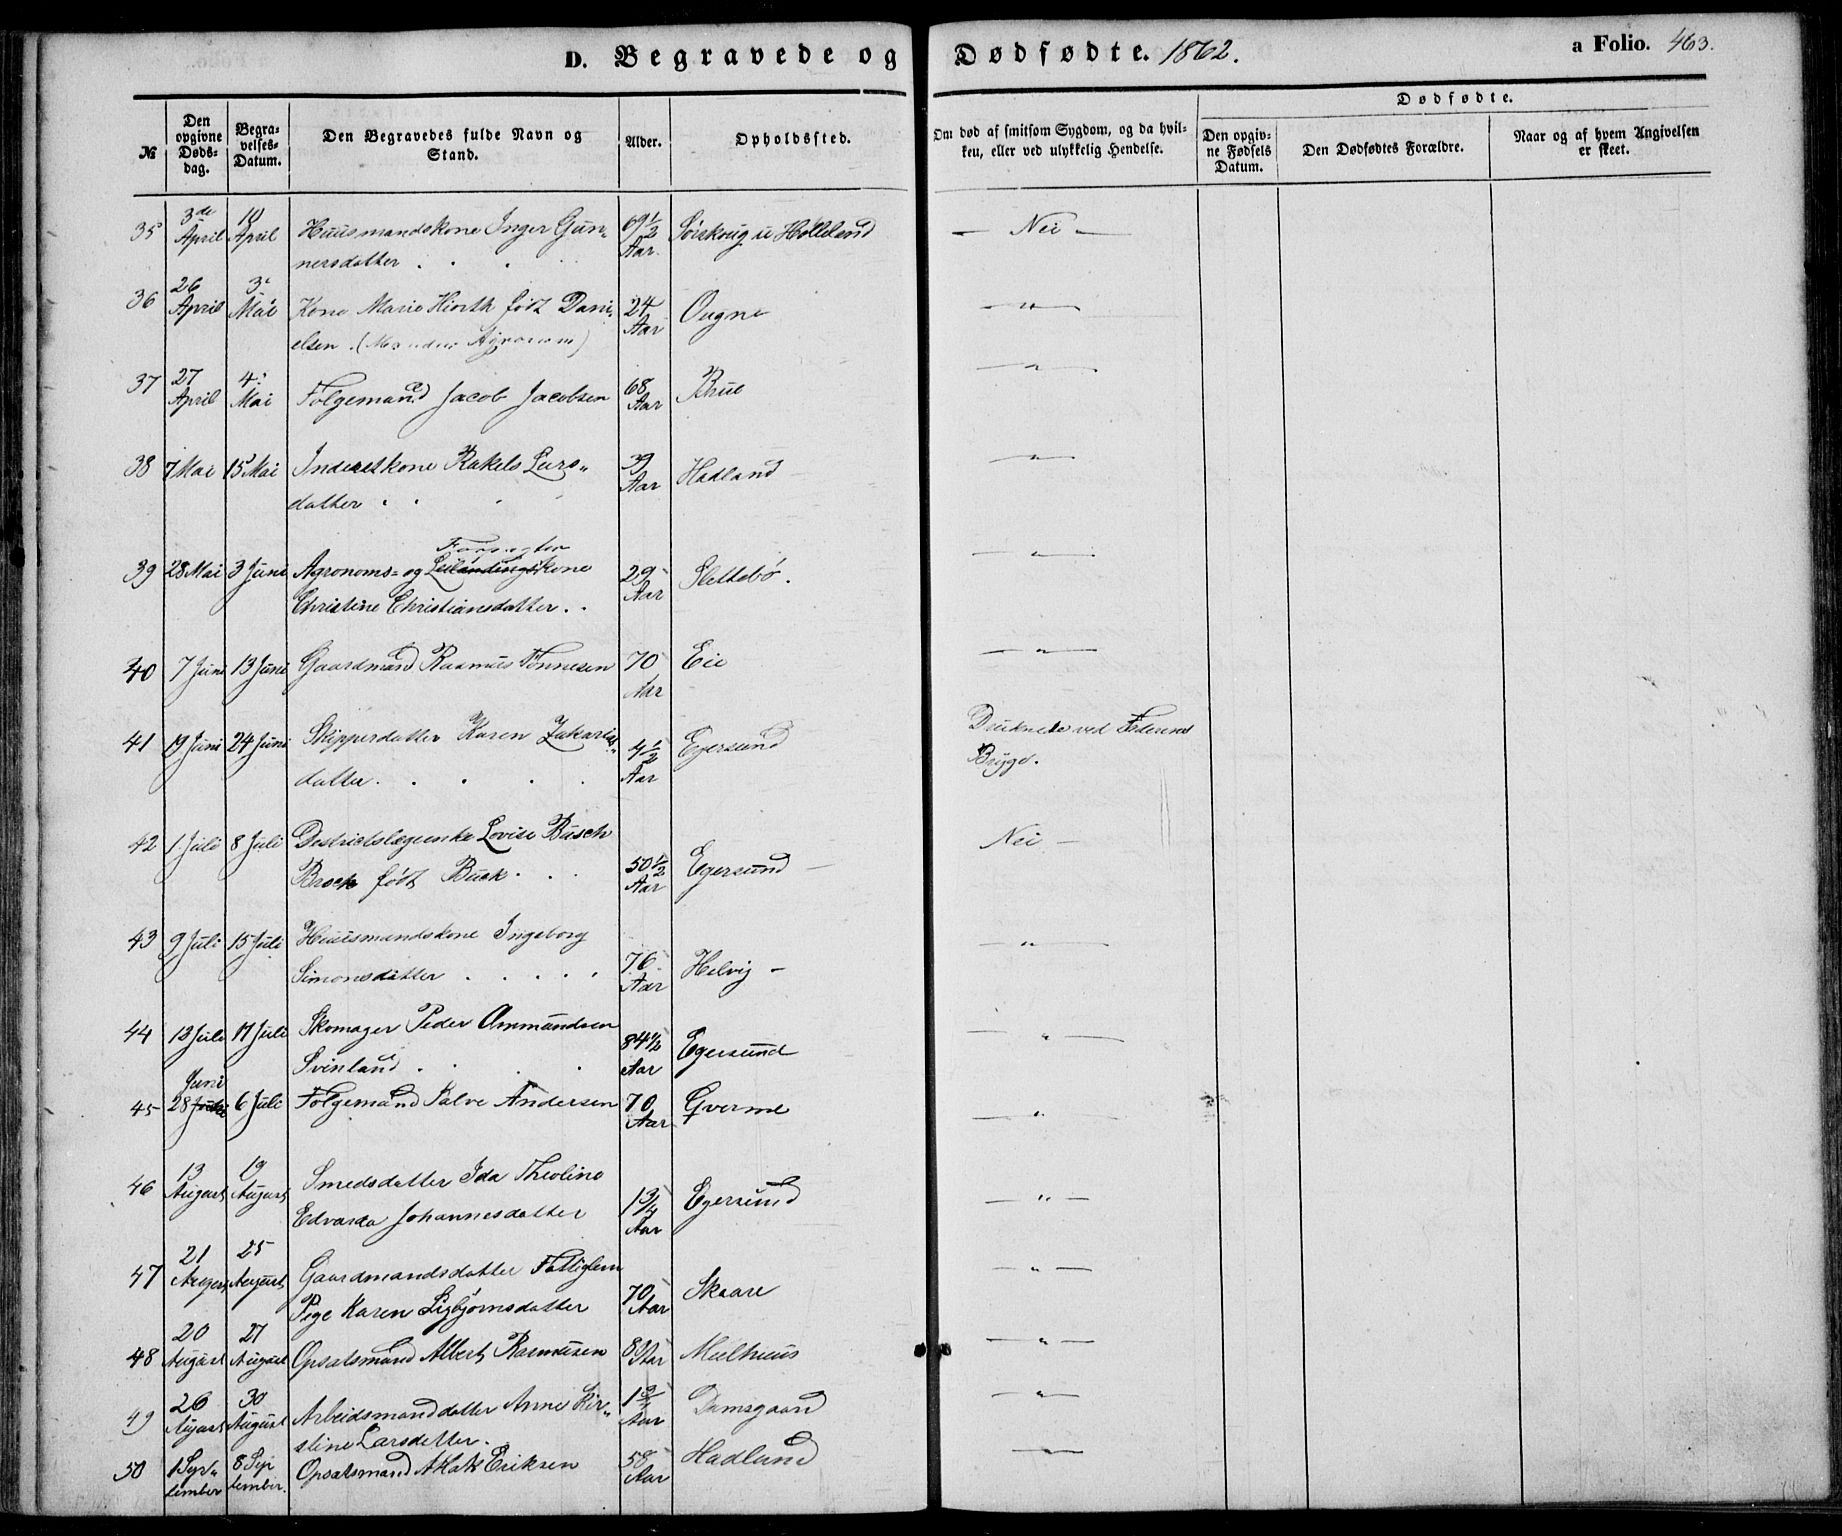 D. Begravede og Dødfødte. 1862. a Folio. 463.
Dødfødte.
№ Den opgivne Dødsdag. Begravelses-Datum. Den Begravedes fulde Navn og Stand. Alder. Opholdssted. Om død af smitsom Sygdom, og da hvilken, eller ved ulykkelig Hendelse. Den opgivne Fødsels Datum. Den Dødfødtes Forældre. Naar og af hvem Angivelsen er skeet.
35 3de April 10 April Huusmandskone Inger Gun- 69½ Aar. u Hølleland — Nei —
nersdatter . . .
36 26 April 3 Mai Kone Marie Hiorth født Dani- 24 Aar Ougne — " —
elsen. (Manden Agronom)
37 27 April 4 Mai Følgemand Jacob Jacobsen 68 Aar Rhue — " —
38 7 Mai 15 Mai Inderstkone Rakels Lars„ 39 Aar Hadland — " —
datter . . .
Forpagter
39 28 Mai 3 Juni Agronoms= og Leilændingskone 29 Aar Slettebø. — " —
Christine Christiansdatter . .
40 7 Juni 13 Juni Gaardmand Rasmus Tønnesen 70 Aar Eie — " —
41 19 Juni 24 Juni Skipperdatter Karen Zakarias„ 4½ Aar Egersund Druknede ved Federens
datter. . . . . Brygge.
42 1 Juli 8 Juli Destrictslægeenke Lovise Busch Nei —
Brock født Buck . . . 50½ Aar Egersund —
43 9 Juli 15 Juli Huusmandskone Ingeborg — " —
Simonsdatter . . . . . 76 Aar Helvig —
44 13 Juli 17 Juli Skomager Peder Ommundsen 84½ Aar Egersund — " —
Svinland . . .
Juni
45 28 Juli 6 Juli Følgemand Salve Andersen 70 Aar Qverme — " —
46 13 August 19 August Smedsdatter Ida Theoline — " —
Edvarda Johannesdatter 1¾ Aar Egersund
47 21 August 25 August Gaardmandsdatter Fattiglem — " —
Pige Karen Sigbjørnsdatter 70 Aar Skaare
48 20 August 27 August Opsatsmand Albert Rasmusen 89 Aar Mælhuus — " —
49 26 August 30 August Arbeidsmanddatter Anne Kir„ Aar Damsgaard — " —
stine Larsdatter.
50 1 Sep„tember 8 September. Opsatsmand Eriksen 58 Aar Hadland — " —